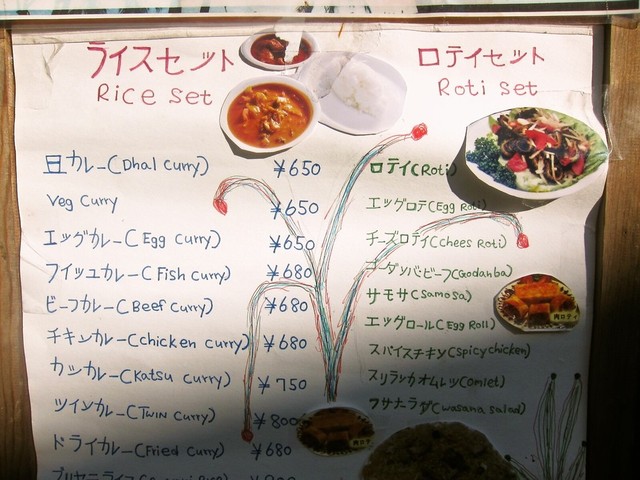 ライスセット
Rice set
豆カレー(Dhal curry) ¥650
Veg curry ¥650
エッグカレー(Egg curry) ¥650
フィッュカレー(Fish curry) ¥680
ビーフカレー(Beef curry) ¥680
チキンカレー(chicken curry) ¥680
カツカレー(Katsu curry) ¥750
ツインカレー(Twin curry) ¥800
ドライカレー(Fried curry) ¥680
ロティセット
Roti set
ロティ(Roti)
エッグロテ(Egg Roti)
チーズロティ(chees Roti)
ゴーダンバ・ビーフ(Godanba)
サモサ(Samosa)
エッグロール(Egg Roll)
スパイスチキン(spicy chicken)
スリランカオムレツ(omlet)
ワサナラダ(wasana salad)